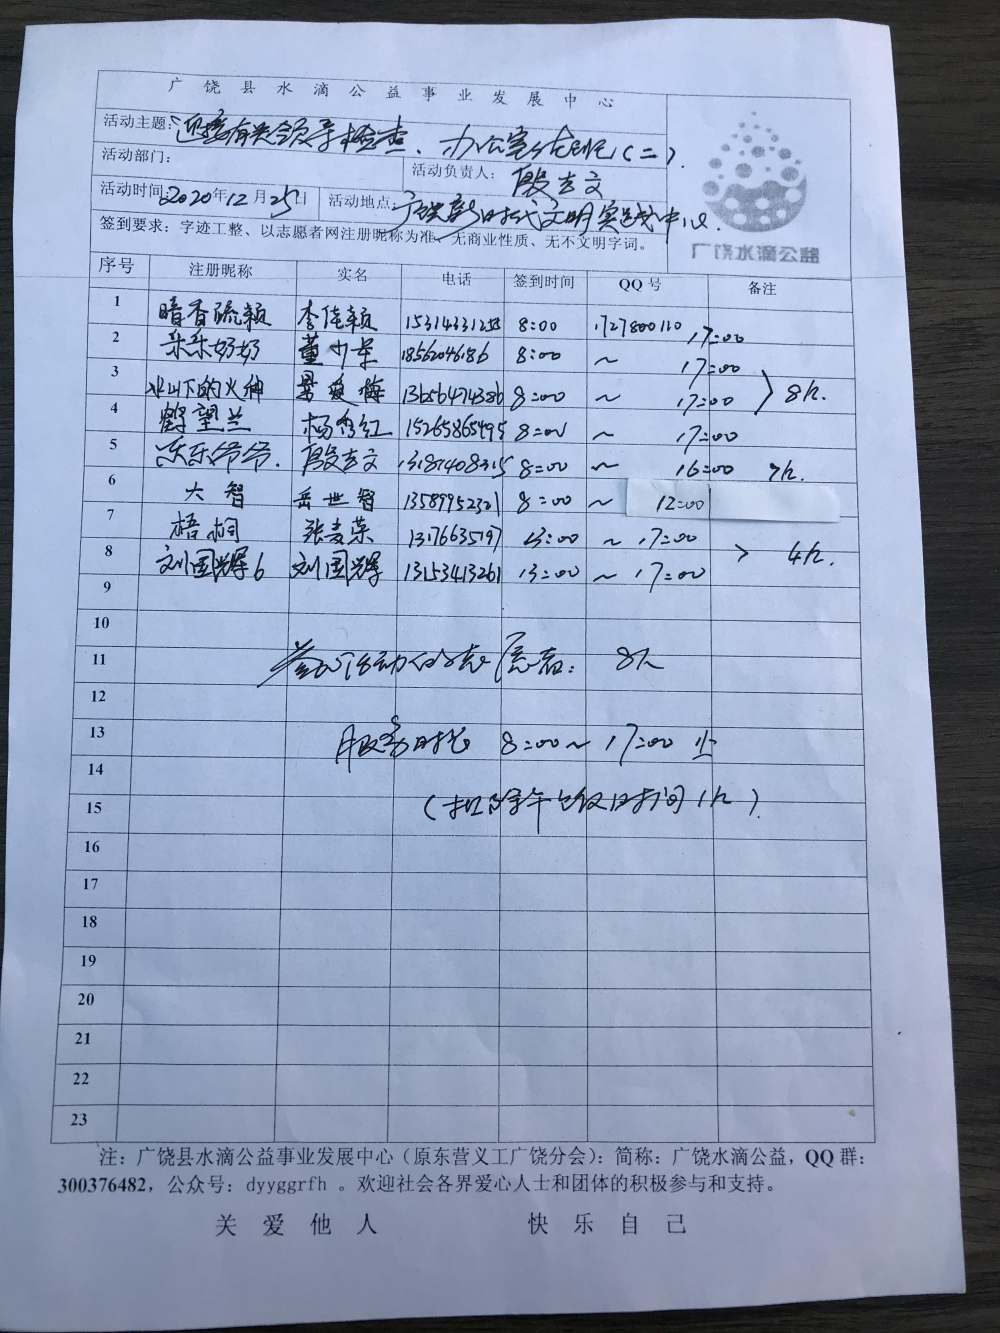 广饶县水滴公益事业发展中心
活动主题：迎接有关领导检查、办公室值班（二）.
活动部门： 活动负责人：殷志文
活动时间：2020年12月25日 活动地点：广饶新时代文明实践中心.
签到要求：字迹工整、以志愿者网注册昵称为准、无商业性质、无不文明字词。
广饶水滴公益
序号 注册昵称 实名 电话 签到时间 QQ 号 备注
1 暗香疏颖 李佳颖 8:00 1727800110 17:00
2 乐乐奶奶 董 18562046186 8:00 ～ 17:00
3 冰山下的火种 爱梅 13656474386 8:00 ～ 17:00 8h.
4 鹤望兰 杨秀红 15265865495 8:00 ～ 17:00
5 乐乐爷爷. 殷志文 8:00 ～ 16:00 7h.
6 大智 岳世智 13589952321 8:00 ～ 12:00
7 梧桐 张麦荣 13:00 ～ 17:00
8 刘国辉6 刘国辉 13153413261 13:00 ～ 17:00 4h.
9
10
11 8h
12
13 服务时长 8:00～17:00 止
14
15 （扣除午饭时间1h）.
16
17
18
19
20
21
22
23
注：广饶县水滴公益事业发展中心（原东营义工广饶分会）：简称：广饶水滴公益，QQ 群：
300376482，公众号：dyyggrfh 。欢迎社会各界爱心人士和团体的积极参与和支持。
关爱他人 快乐自己